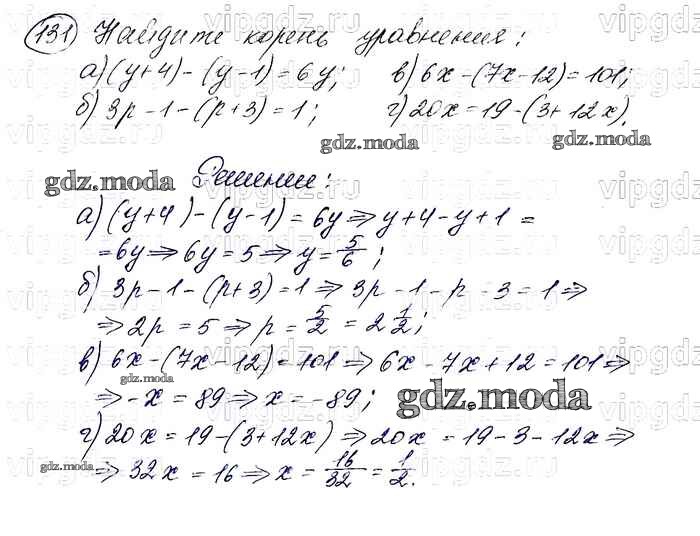 131 Найдите корень уравнения:
а) (y+4) - (y-1) = 6y; в) 6x - (7x-12) = 101;
б) 3p - 1 - (p+3) = 1; г) 20x = 19 - (3+12x).
gdz.moda gdz.moda
gdz.moda Решение:
а) (y+4) - (y-1) = 6y ⇒ y+4-y+1 =
= 6y ⇒ 6y = 5 ⇒ y = 5/6;
б) 3p - 1 - (p+3) = 1 ⇒ 3p - 1 - p - 3 = 1 ⇒
⇒ 2p = 5 ⇒ p = 5/2 = 2 1/2;
в) 6x - (7x-12) = 101 ⇒ 6x - 7x + 12 = 101 ⇒
gdz.moda
⇒ -x = 89 ⇒ x = -89; gdz.moda
г) 20x = 19 - (3+12x) ⇒ 20x = 19 - 3 - 12x ⇒
gdz.moda ⇒ 32x = 16 ⇒ x = 16/32 = 1/2.